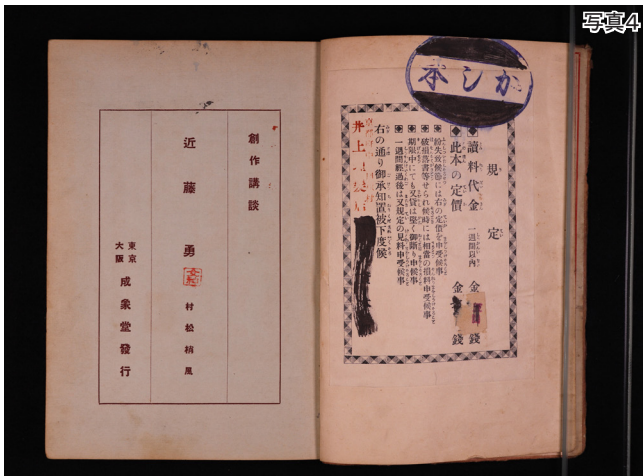 写真4
かし本
規定
◆讀料代金 一週間以内 金 錢
◆此本の定價 金 錢
紛失致候節には右の定價を申受候事
破損落書等せられ候時には相當の損料申受候事
期限中にても又貸は堅く御斷り申候事
一週間經過後は又規定の見料申受候事
右の通り御承知置被下度候
井上
創作講談
近藤勇
村松梢風
東京
大阪
成象堂發行